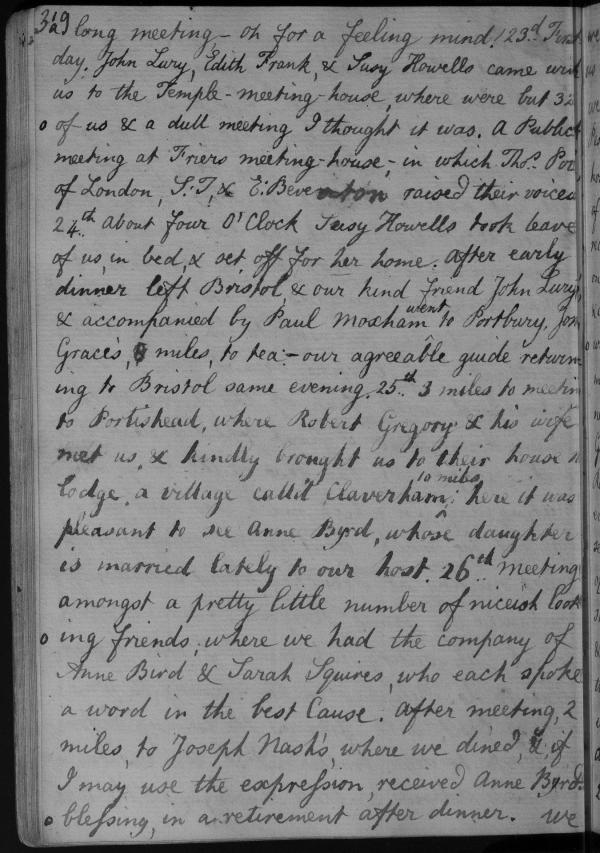 319
long meeting - oh for a feeling mind! 23.d First
day. John Lury, Edith Frank, & Susy Howells came with
us to the Temple-meeting-house, where were but 32
of us & a dull meeting I thought it was. A Public
meeting at Friers meeting-house, - in which Thos.
of London, S:T, & E: Beventon raised their voices
24.th About four O'Clock Susy Howells took leave
of us, in bed, & set off for her home. After early
dinner left Bristol, & our kind friend John Lury's,
& accompanied by Paul Moxham went to Portbury, John
Grace's, miles, to tea:- our agreeable guide return-
ing to Bristol same evening. 25.th 3 miles to meeting
to Portishead, where Robert Gregory & his wife
met us, & kindly brought us to their house to
lodge, a village call'd Claverham, 10 miles; here it was
pleasant to see Anne Byrd, whose daughter
is married lately to our host. 26.th Meeting
amongst a pretty little number of niceish look
ing friends, where we had the company of
Anne Bird & Sarah Squires, who each spoke
a word in the best Cause. After meeting, 2
miles, to Joseph Nash's, where we dined, & if
I may use the expression, received Anne Byrd's
blessing, in a retirement after dinner. We